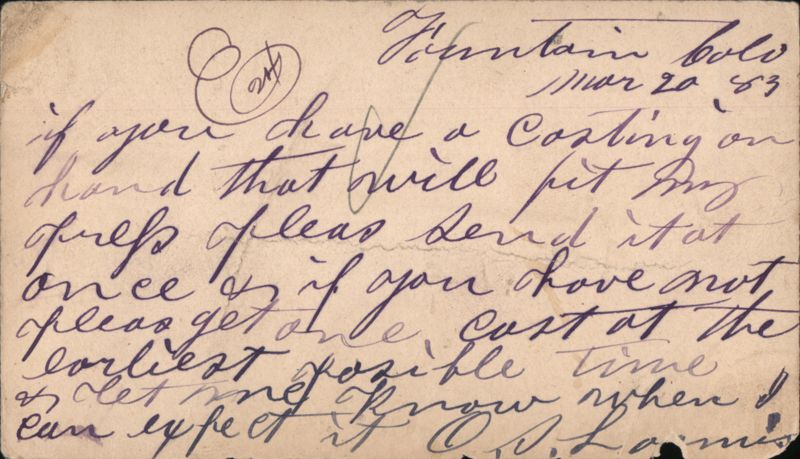 Fountain Colo
Mar 20 83
if you have a casting on
hand that will fit my
press pleas send it at
once & if you have not
pleas get one cast at the
earliest posible time
& let me know when I
can expect it O. S. Loomis